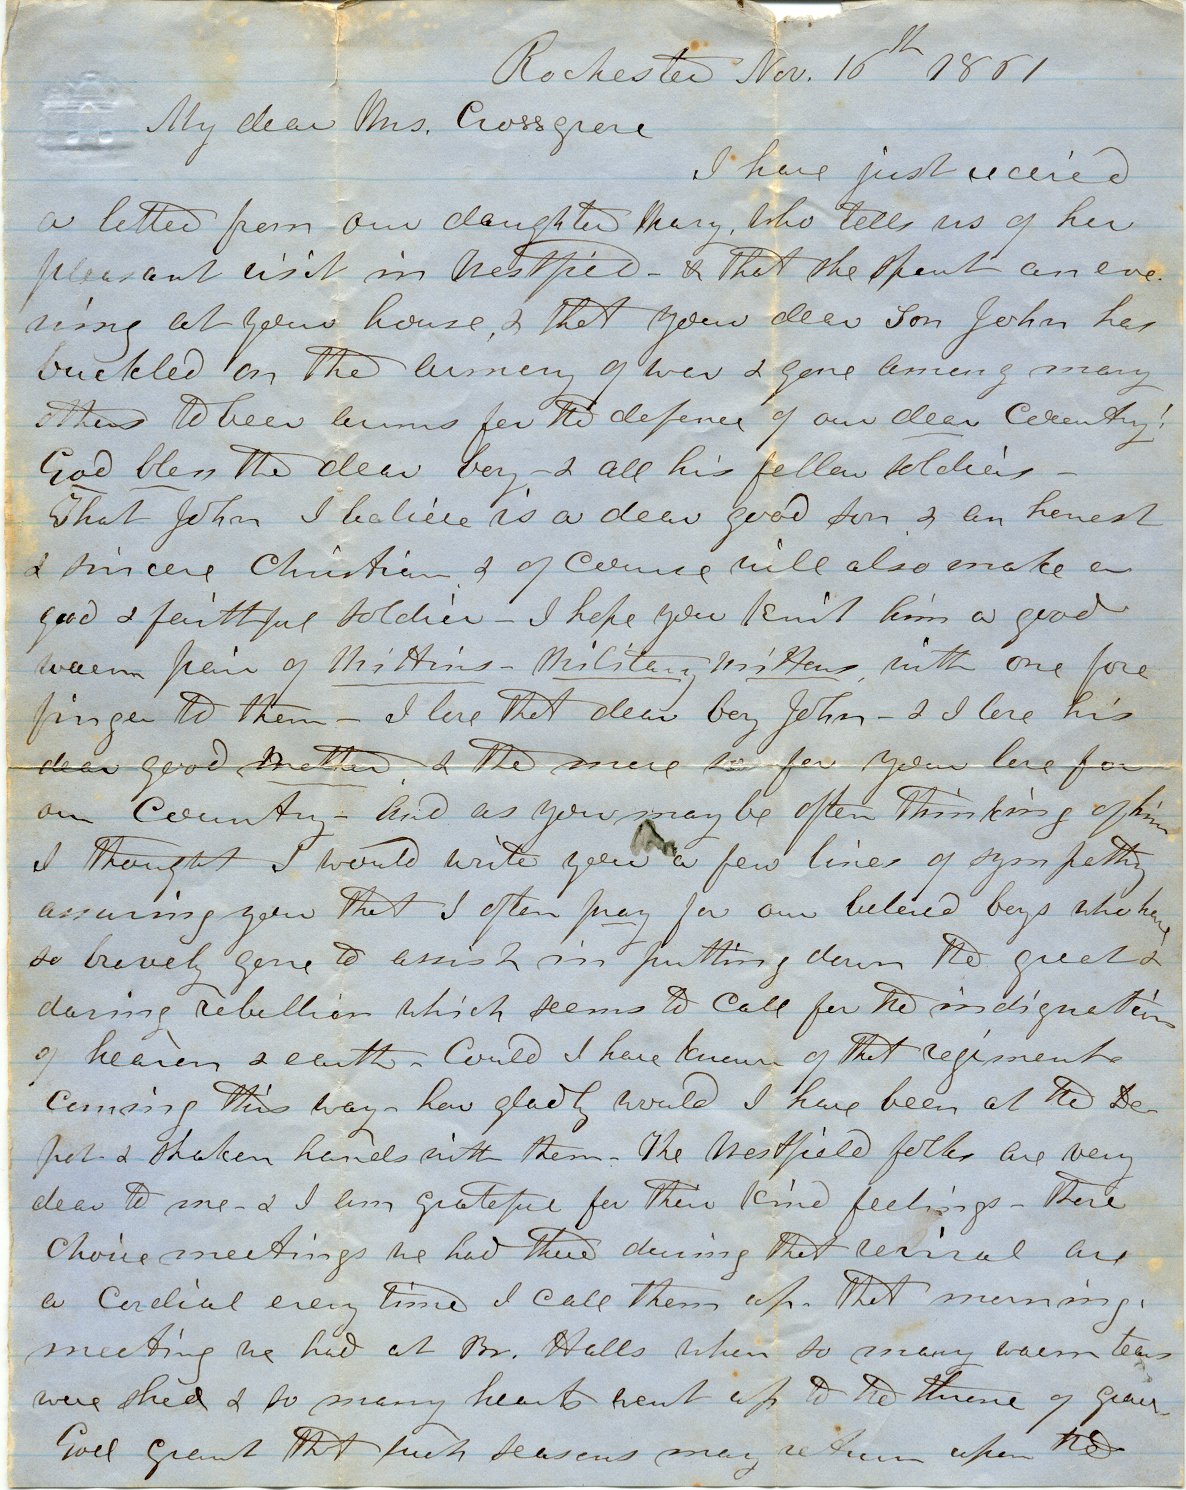 Rochester Nov. 16th 1861
My dear Mrs. Crossgrove
I have just received
a letter from our daughter Mary, who tells us of her
pleasant visit in Westfield - & that she spent an eve-
ning at your house, & that your dear son John has
buckled on the armory of war & gone among many
others to bear arms for the defence of our dear Country!
God bless the dear boy - & all his fellow soldiers -
That John I believe is a dear good son & an honest
& sincere Christian & of course will also make a
good & faithful soldier - I hope you knit him a good
warm pair of mittins - military mittens, with one fore
finger to them - I love that dear boy John - & I love his
dear good Mother, & the more so for your love for
our Country - And as you may be often thinking of him
I thought I would write you a few lines of sympathy
assuring you that I often pray for our beloved boys who have
so bravely gone to assist in putting down the great &
daring rebellion which seems to call for the indignation
of heaven & earth - Could I have known of that regiment
coming this way - how gladly would I have been at the De-
pot & shaken hands with them - The Westfield folks are very
dear to me - & I am grateful for their kind feelings - there
choice meetings we had there during that revival are
a cordial every time I call them up - that morning
meeting we had at Br. Halls when so many warm tears
were shed & so many hearts went up to the throne of grace
God grant that such seasons may return upon the